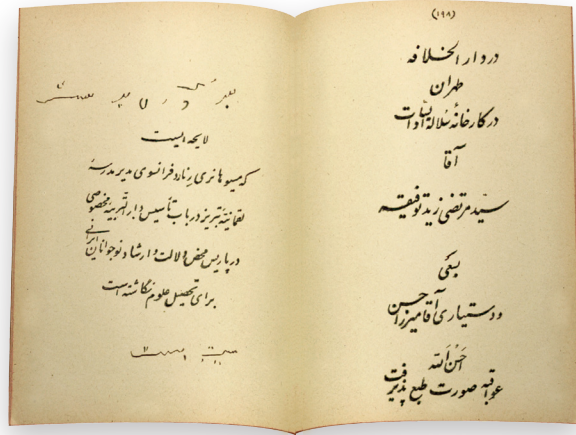 (۱۹۸)
در دار الخلافه
طهران
در کارخانهٔ سلالة السادات
آقا
سید مرتضی زید توفیقه
بسعی
و دستیاری آقا میرزا حسن
احسن الله
عواقبه صورت طبع پذیرفت
لایحه ایست
که مسیو هانری رنارد فرانسوی مدیر مدرسهٔ
لقمانیهٔ تبریز در باب تأسیس دار التربیه مخصوصی
در پاریس محض دلالت و ارشاد نوجوانان ایرانی
برای تحصیل علوم نگاشته است